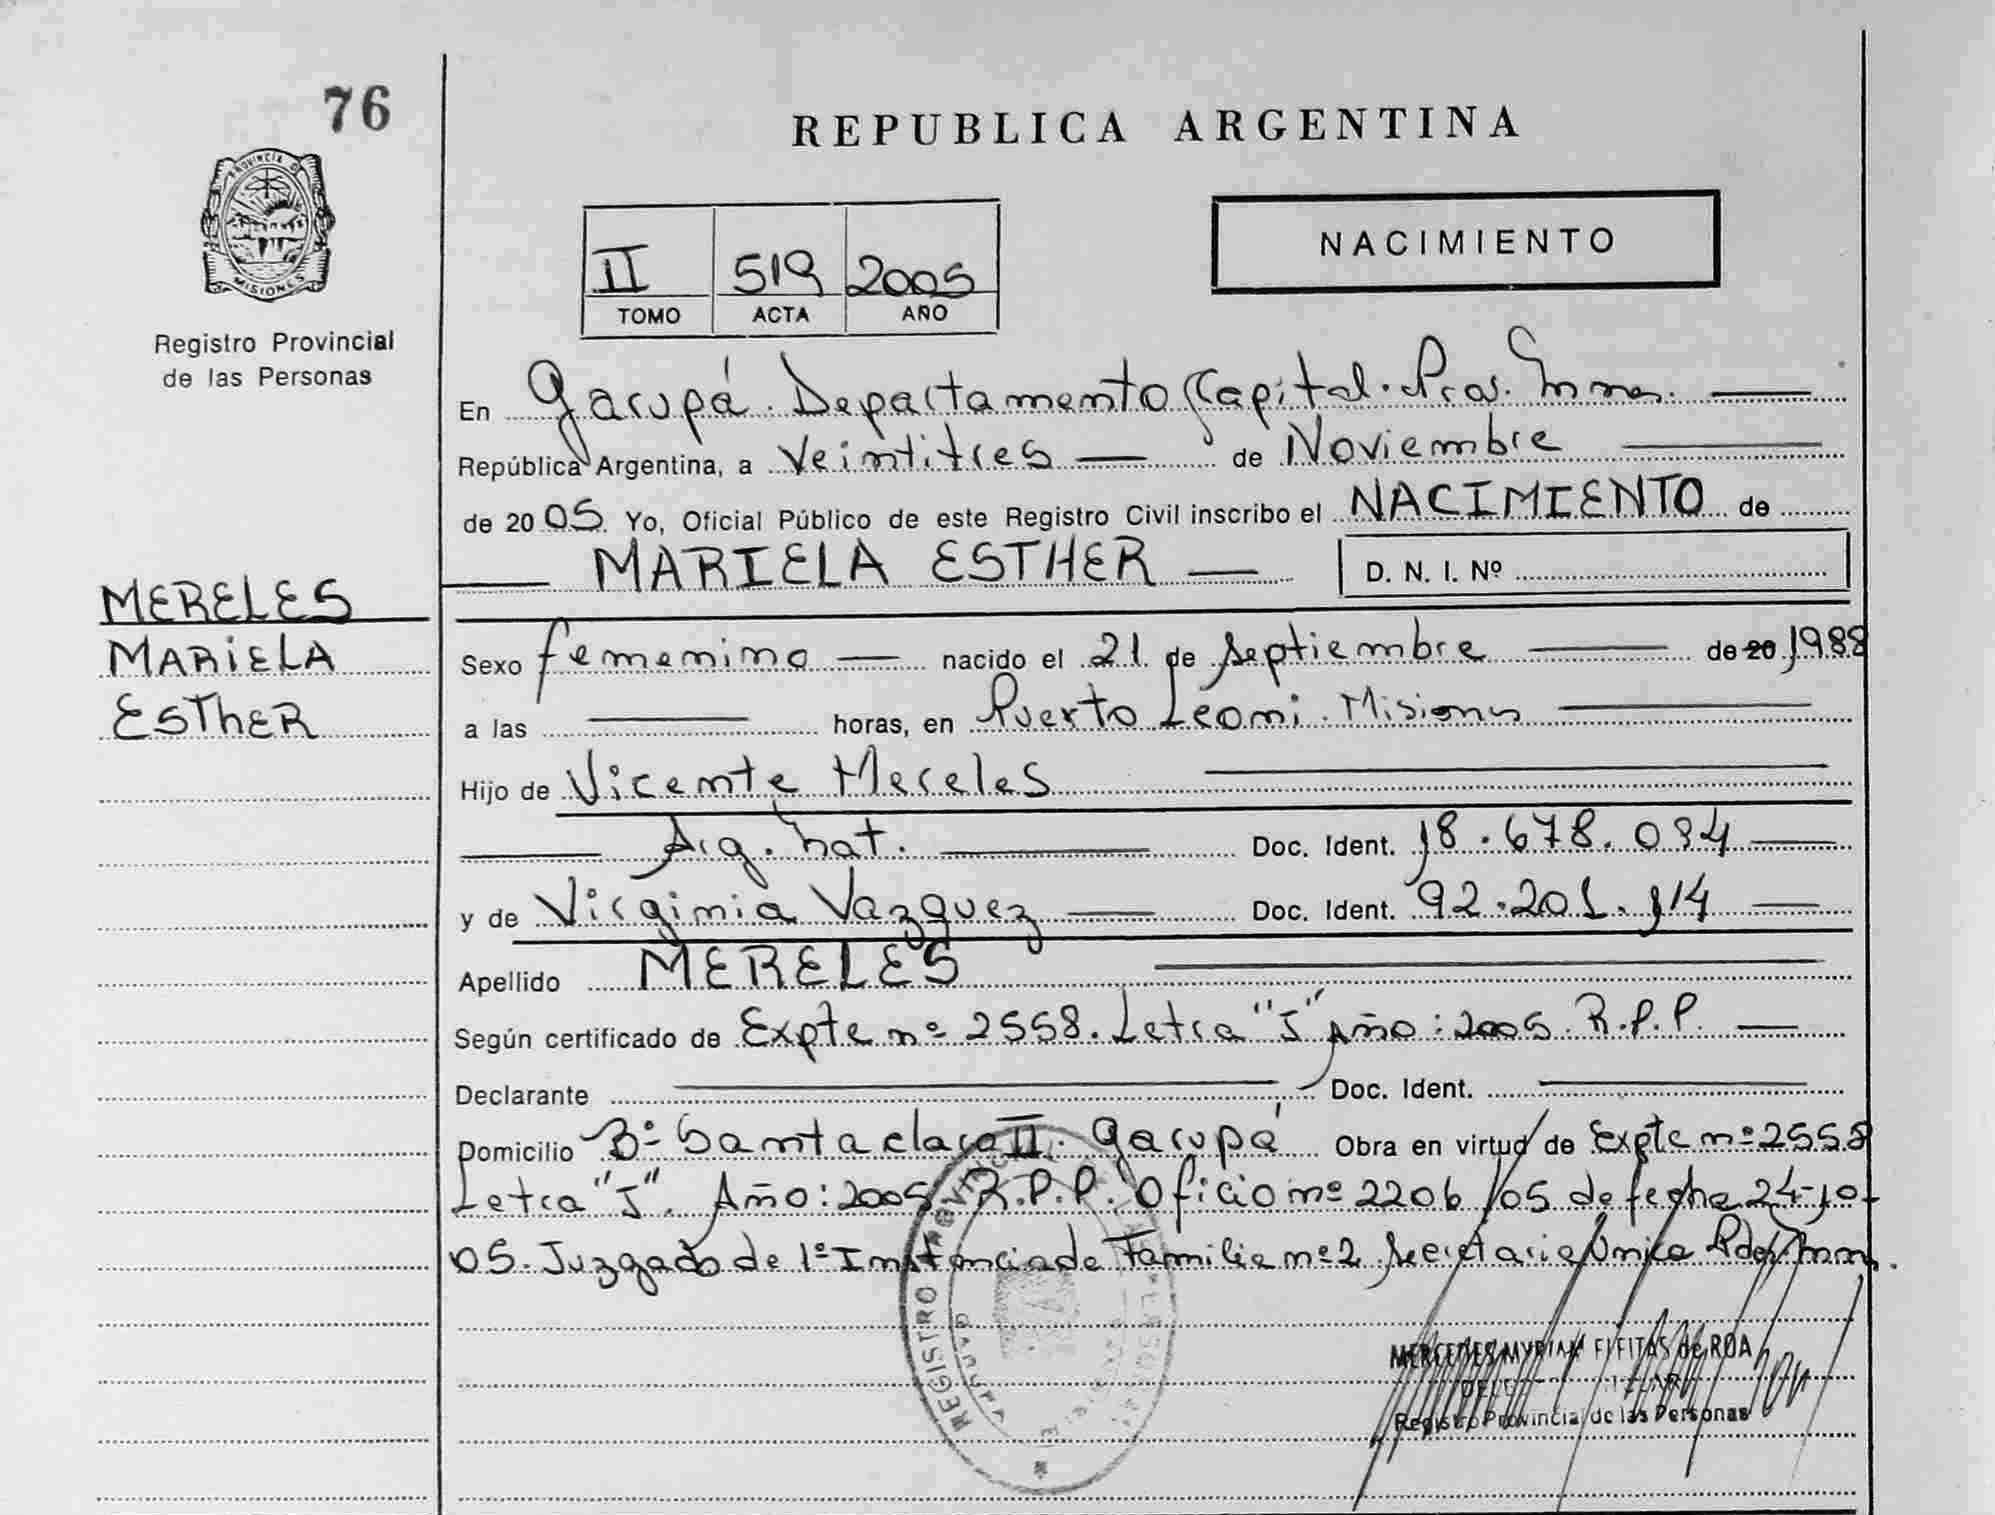 76
REPUBLICA ARGENTINA
PROVINCIA D
MISIONES
Registro Provincial
de las Personas
NACIMIENTO
II 519 2005
TOMO ACTA AÑO
En Garupá. Departamento Capital. Prov. Mnes.
República Argentina, a Veintitres de Noviembre
de 20 05. Yo, Oficial Público de este Registro Civil inscribo el NACIMIENTO de
MARIELA ESTHER D. N. I. Nº
MERELES
MARIELA
ESTHER
Sexo femenino nacido el 21 de septiembre de 20 1988
a las horas, en Puerto Leoni. Misiones
Hijo de Vicente Mereles
Arg. nat. Doc. Ident. 18.678.034
y de Virginia Vazquez Doc. Ident. 92.201.114
Apellido MERELES
Según certificado de Expte nº 2558. Letra "J" Año: 2005. R.P.P.
Declarante Doc. Ident.
Domicilio Bº Santa clara II. Garupá Obra en virtud de Expte nº 2558
Letra "J". Año: 2005 R.P.P. Oficio nº 2206/05 de fecha 24-10-
05. Juzgado de 1º Instancia de Familia nº 2 Secretaria Unica Pdas. Mnes.
REGISTRO PROVINCIAL
GARUPA
MERCEDES MYRIAM FLEITAS de ROA
Registro Provincial de las Personas